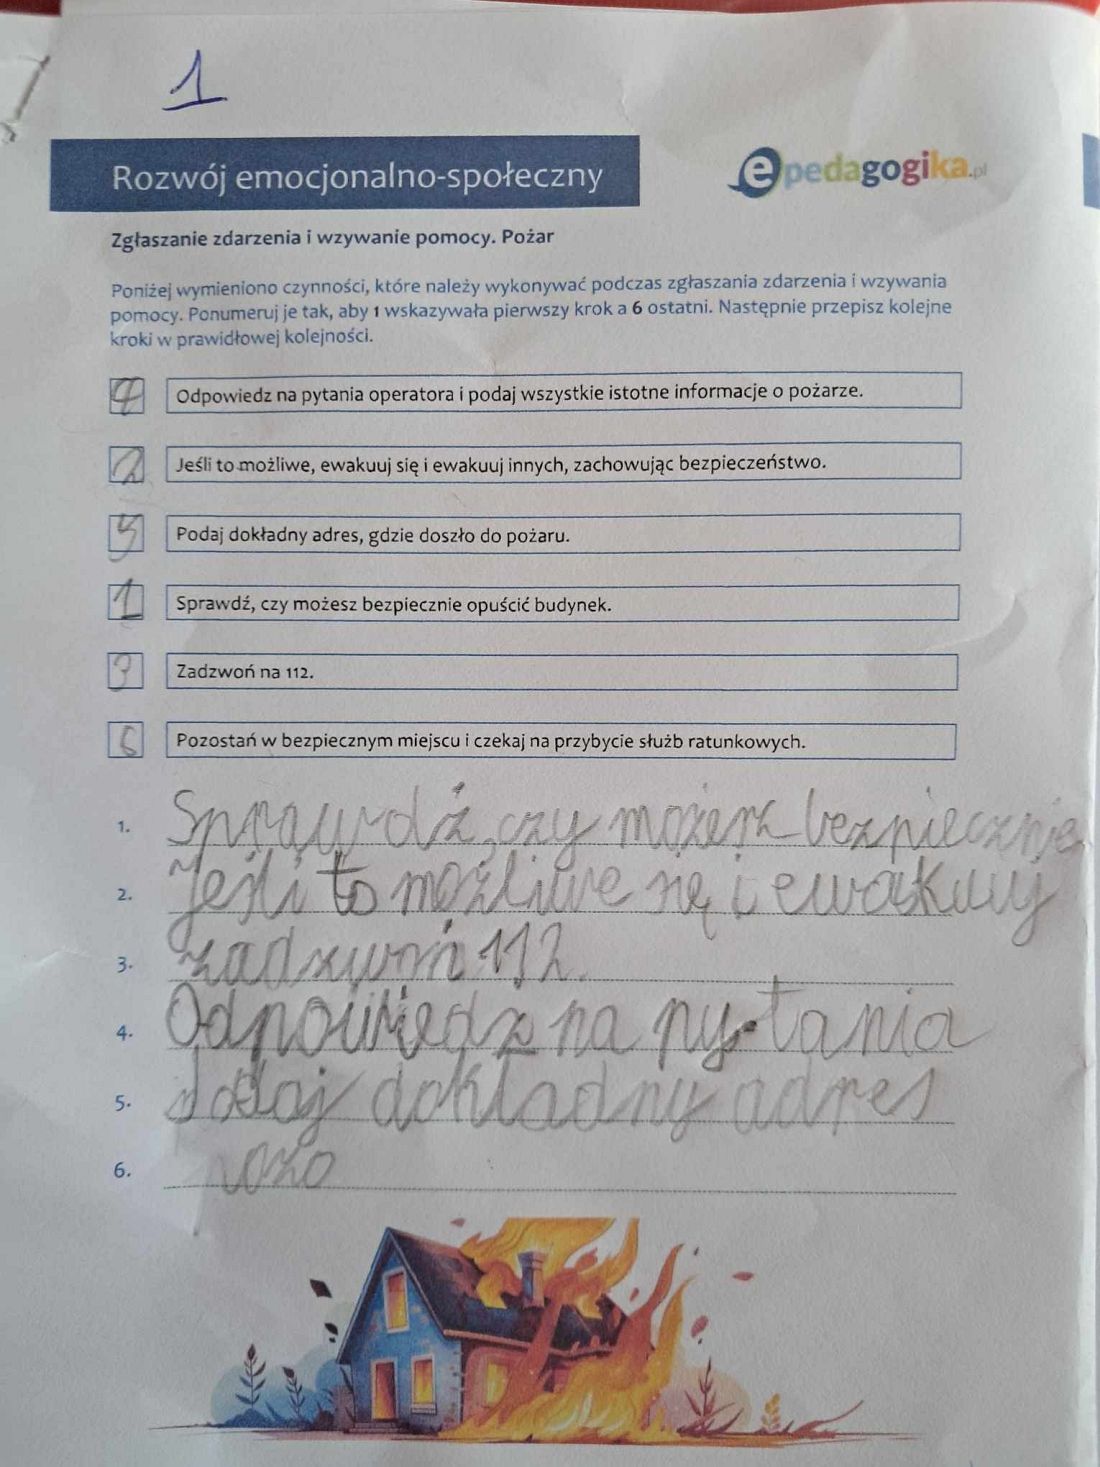 1
Rozwój emocjonalno-społeczny
epedagogika.pl
Zgłaszanie zdarzenia i wzywanie pomocy. Pożar
Poniżej wymieniono czynności, które należy wykonywać podczas zgłaszania zdarzenia i wzywania
pomocy. Ponumeruj je tak, aby 1 wskazywała pierwszy krok a 6 ostatni. Następnie przepisz kolejne
kroki w prawidłowej kolejności.
4 Odpowiedz na pytania operatora i podaj wszystkie istotne informacje o pożarze.
2 Jeśli to możliwe, ewakuuj się i ewakuuj innych, zachowując bezpieczeństwo.
5 Podaj dokładny adres, gdzie doszło do pożaru.
1 Sprawdź, czy możesz bezpiecznie opuścić budynek.
3 Zadzwoń na 112.
6 Pozostań w bezpiecznym miejscu i czekaj na przybycie służb ratunkowych.
1. Sprawdź, czy możesz bezpiecznie
2. Jeśli to możliwe się i ewakuuj
3. zadzwoń 112.
4. Odpowiedz na pytania
5. dokładny adres
6.